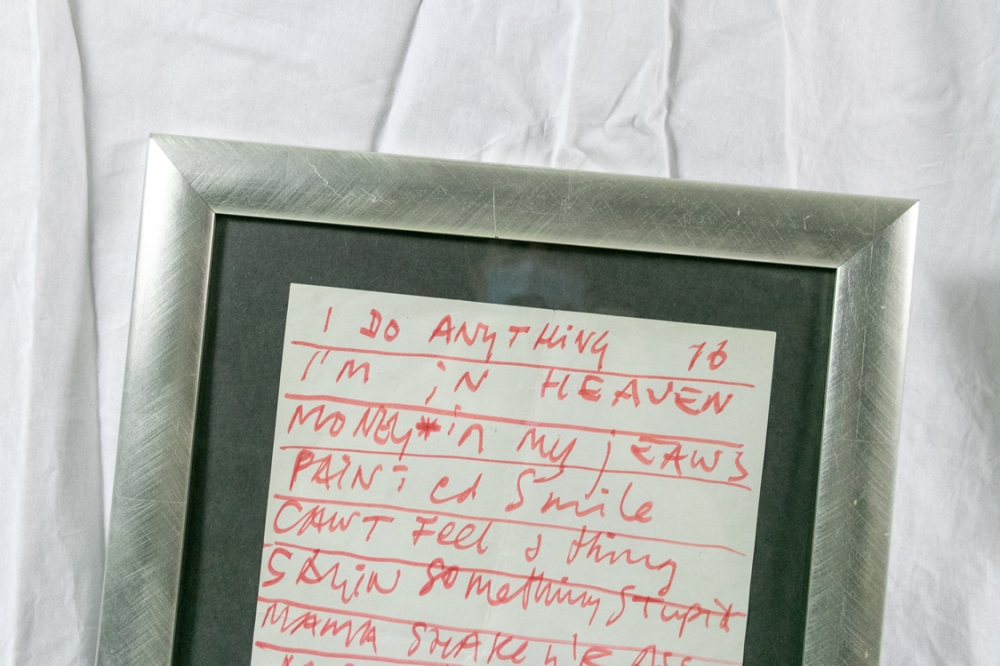 I DO ANYTHING 16
I'M iN HEAVEN
MONEY*in my jEANS
PAiNTED Smile
CAN'T Feel a thing
SAYiN something Stupid
MAMA SHAKE